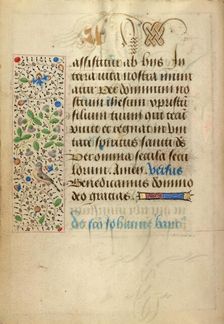 assistitur ab hiis In
terra vita nostra muni
atur Per dominum no
strum ihesum xpristum
filium tuum Qui te
cum vivit et regnat in
unitate spiritus sancti de
Per omnia secula secu
lorum. Amen. Versus
Benedicamus domino
deo gracias.
de sco Johanne bapt